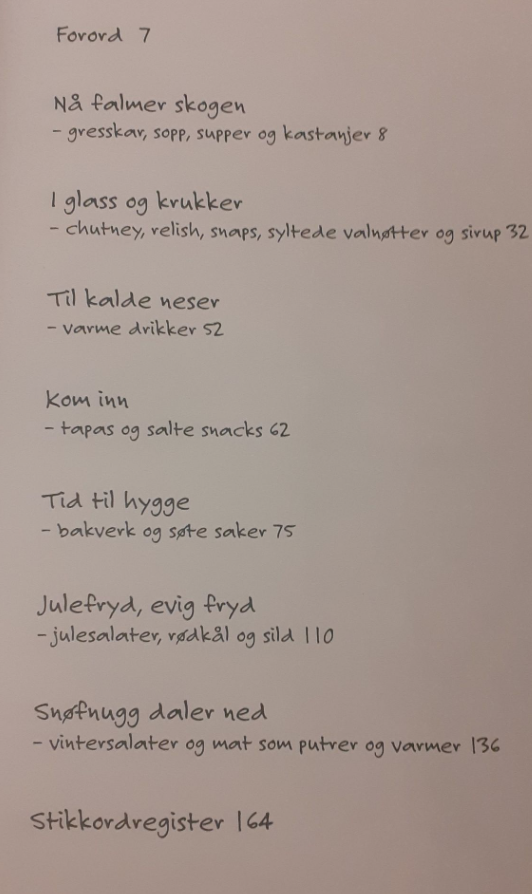 Forord 7
Nå falmer skogen
- gresskar, sopp, supper og kastanjer 8
I glass og krukker
- chutney, relish, snaps, syltede valnøtter og sirup 32
Til kalde neser
- varme drikker 52
Kom inn
- tapas og salte snacks 62
Tid til hygge
- bakverk og søte saker 75
Julefryd, evig fryd
- julesalater, rødkål og sild 110
Snøfnugg daler ned
- vintersalater og mat som putrer og varmer 136
Stikkordregister 164